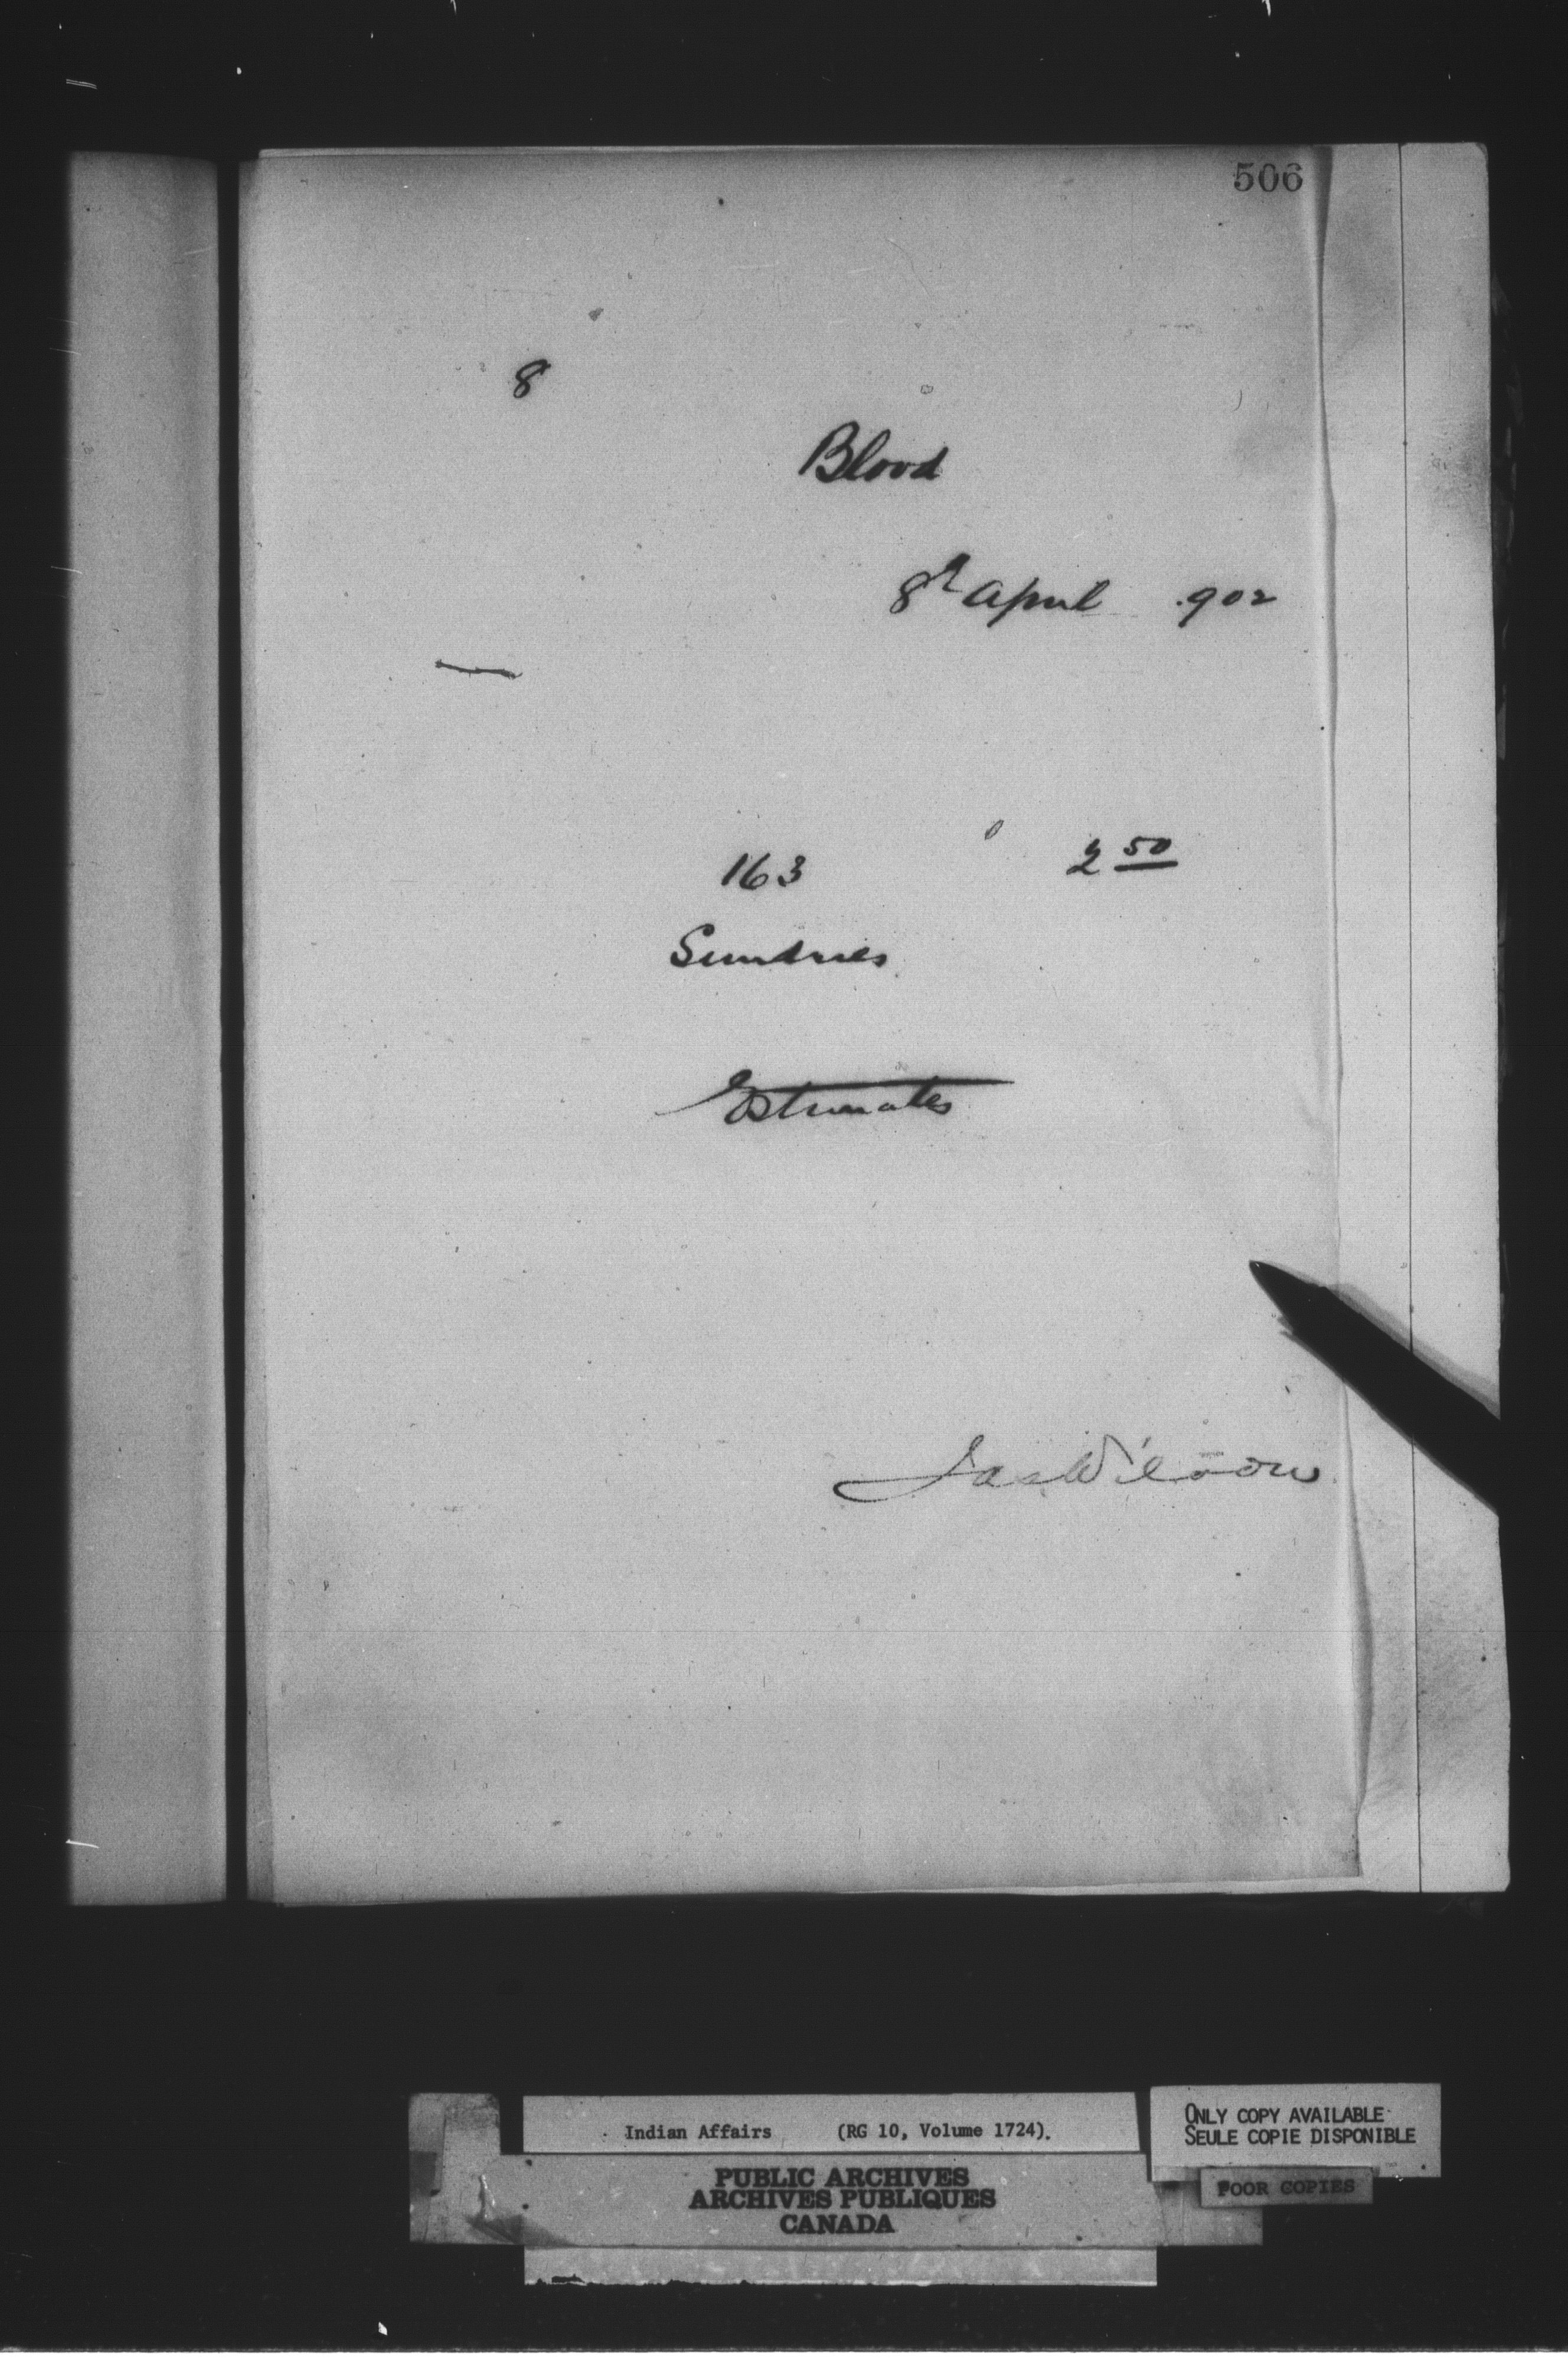 506
8
Blood
8th April .902
163 2 50
Sundries
Estimates
Jas Wilson
Indian Affairs (RG 10, Volume 1724).
PUBLIC ARCHIVES
ARCHIVES PUBLIQUES
CANADA
ONLY COPY AVAILABLE
SEULE COPIE DISPONIBLE
POOR COPIES